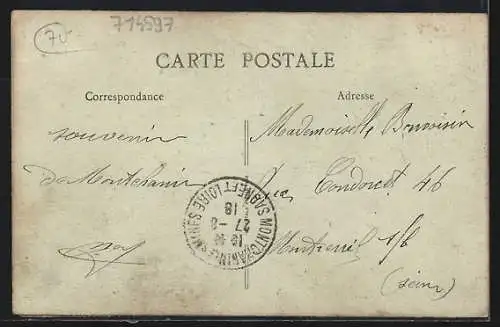 70
714597
CARTE POSTALE
Correspondance
Adresse
souvenir
de Montchanin
Mademoiselle Bonvoisin
Rue Condorcet 46
Montreuil s/B
(Seine)
MONTCHANIN-LES-MINES
SAONE ET LOIRE
27-8
18